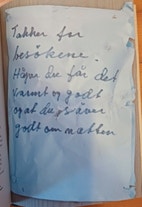 Takker for
besøkene.
Håper dre får det
varmt og godt
og at du sover
godt om natten